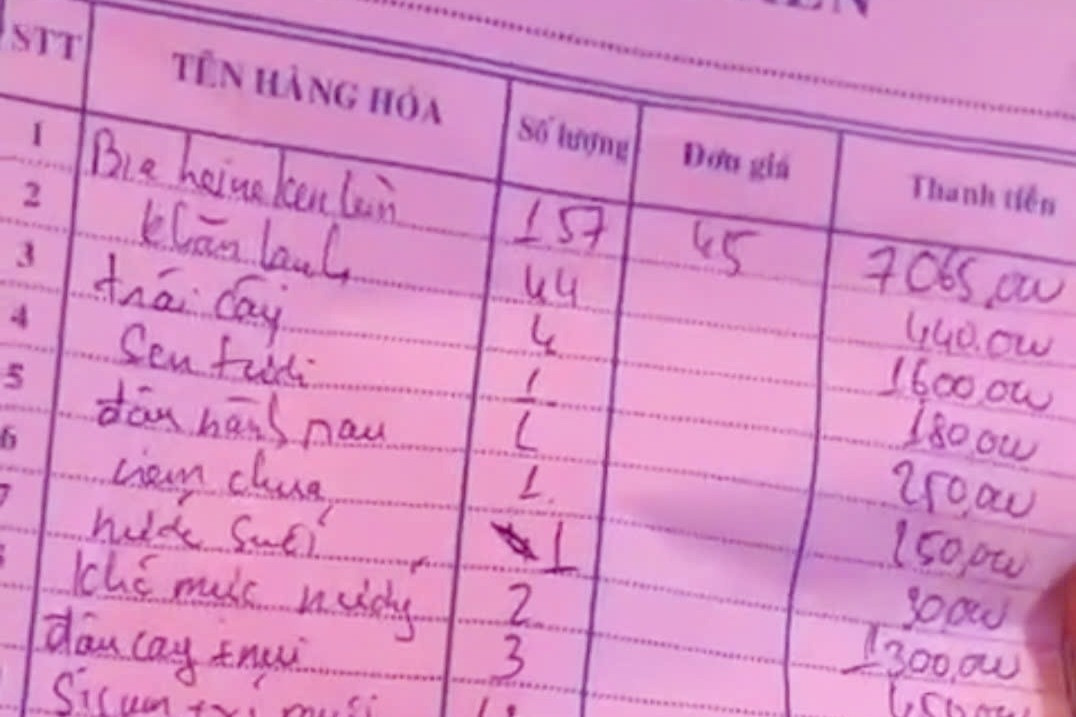 STT TÊN HÀNG HÓA Số lượng Đơn giá Thanh tiền
1 Bia heineken lùn 157 45 7065,000
2 khăn lạnh 44 440.000
3 trái cây 4 1600,000
4 Sen tươi 1 180,000
5 đậu hành nau 1 250,000
6 nem chua 1 150,000
7 nước suối 1 30,000
khô mực nướng 2 1300,000
đậu cay 3